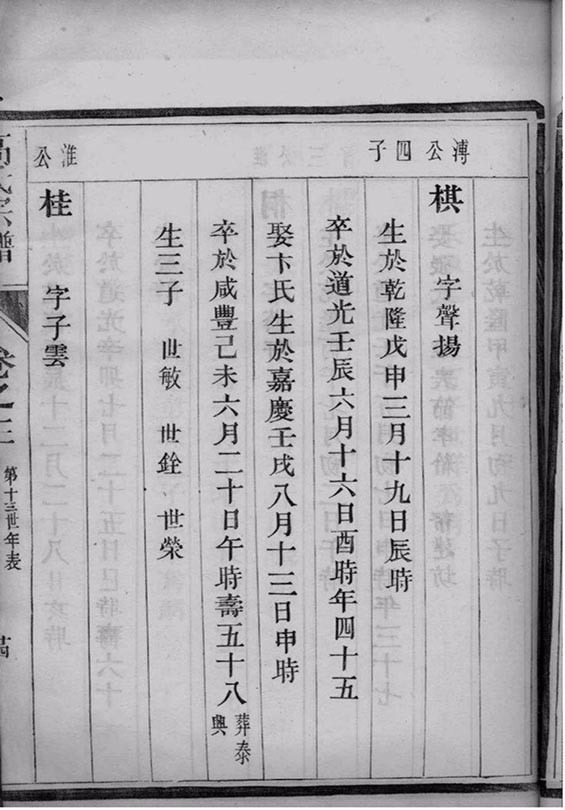 溥公四子
棋 字聲揚
生於乾隆戊申三月十九日辰時
卒於道光壬辰六月十六日酉時年四十五
娶卞氏生於嘉慶壬戌八月十三日申時
卒於咸豐己未六月二十日午時壽五十八葬泰興
生三子 世敏 世銓 世榮
淮公
桂 字子雲
氏宗譜
卷之三
第十三世年表